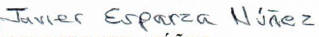 Javier Esparza Núñez